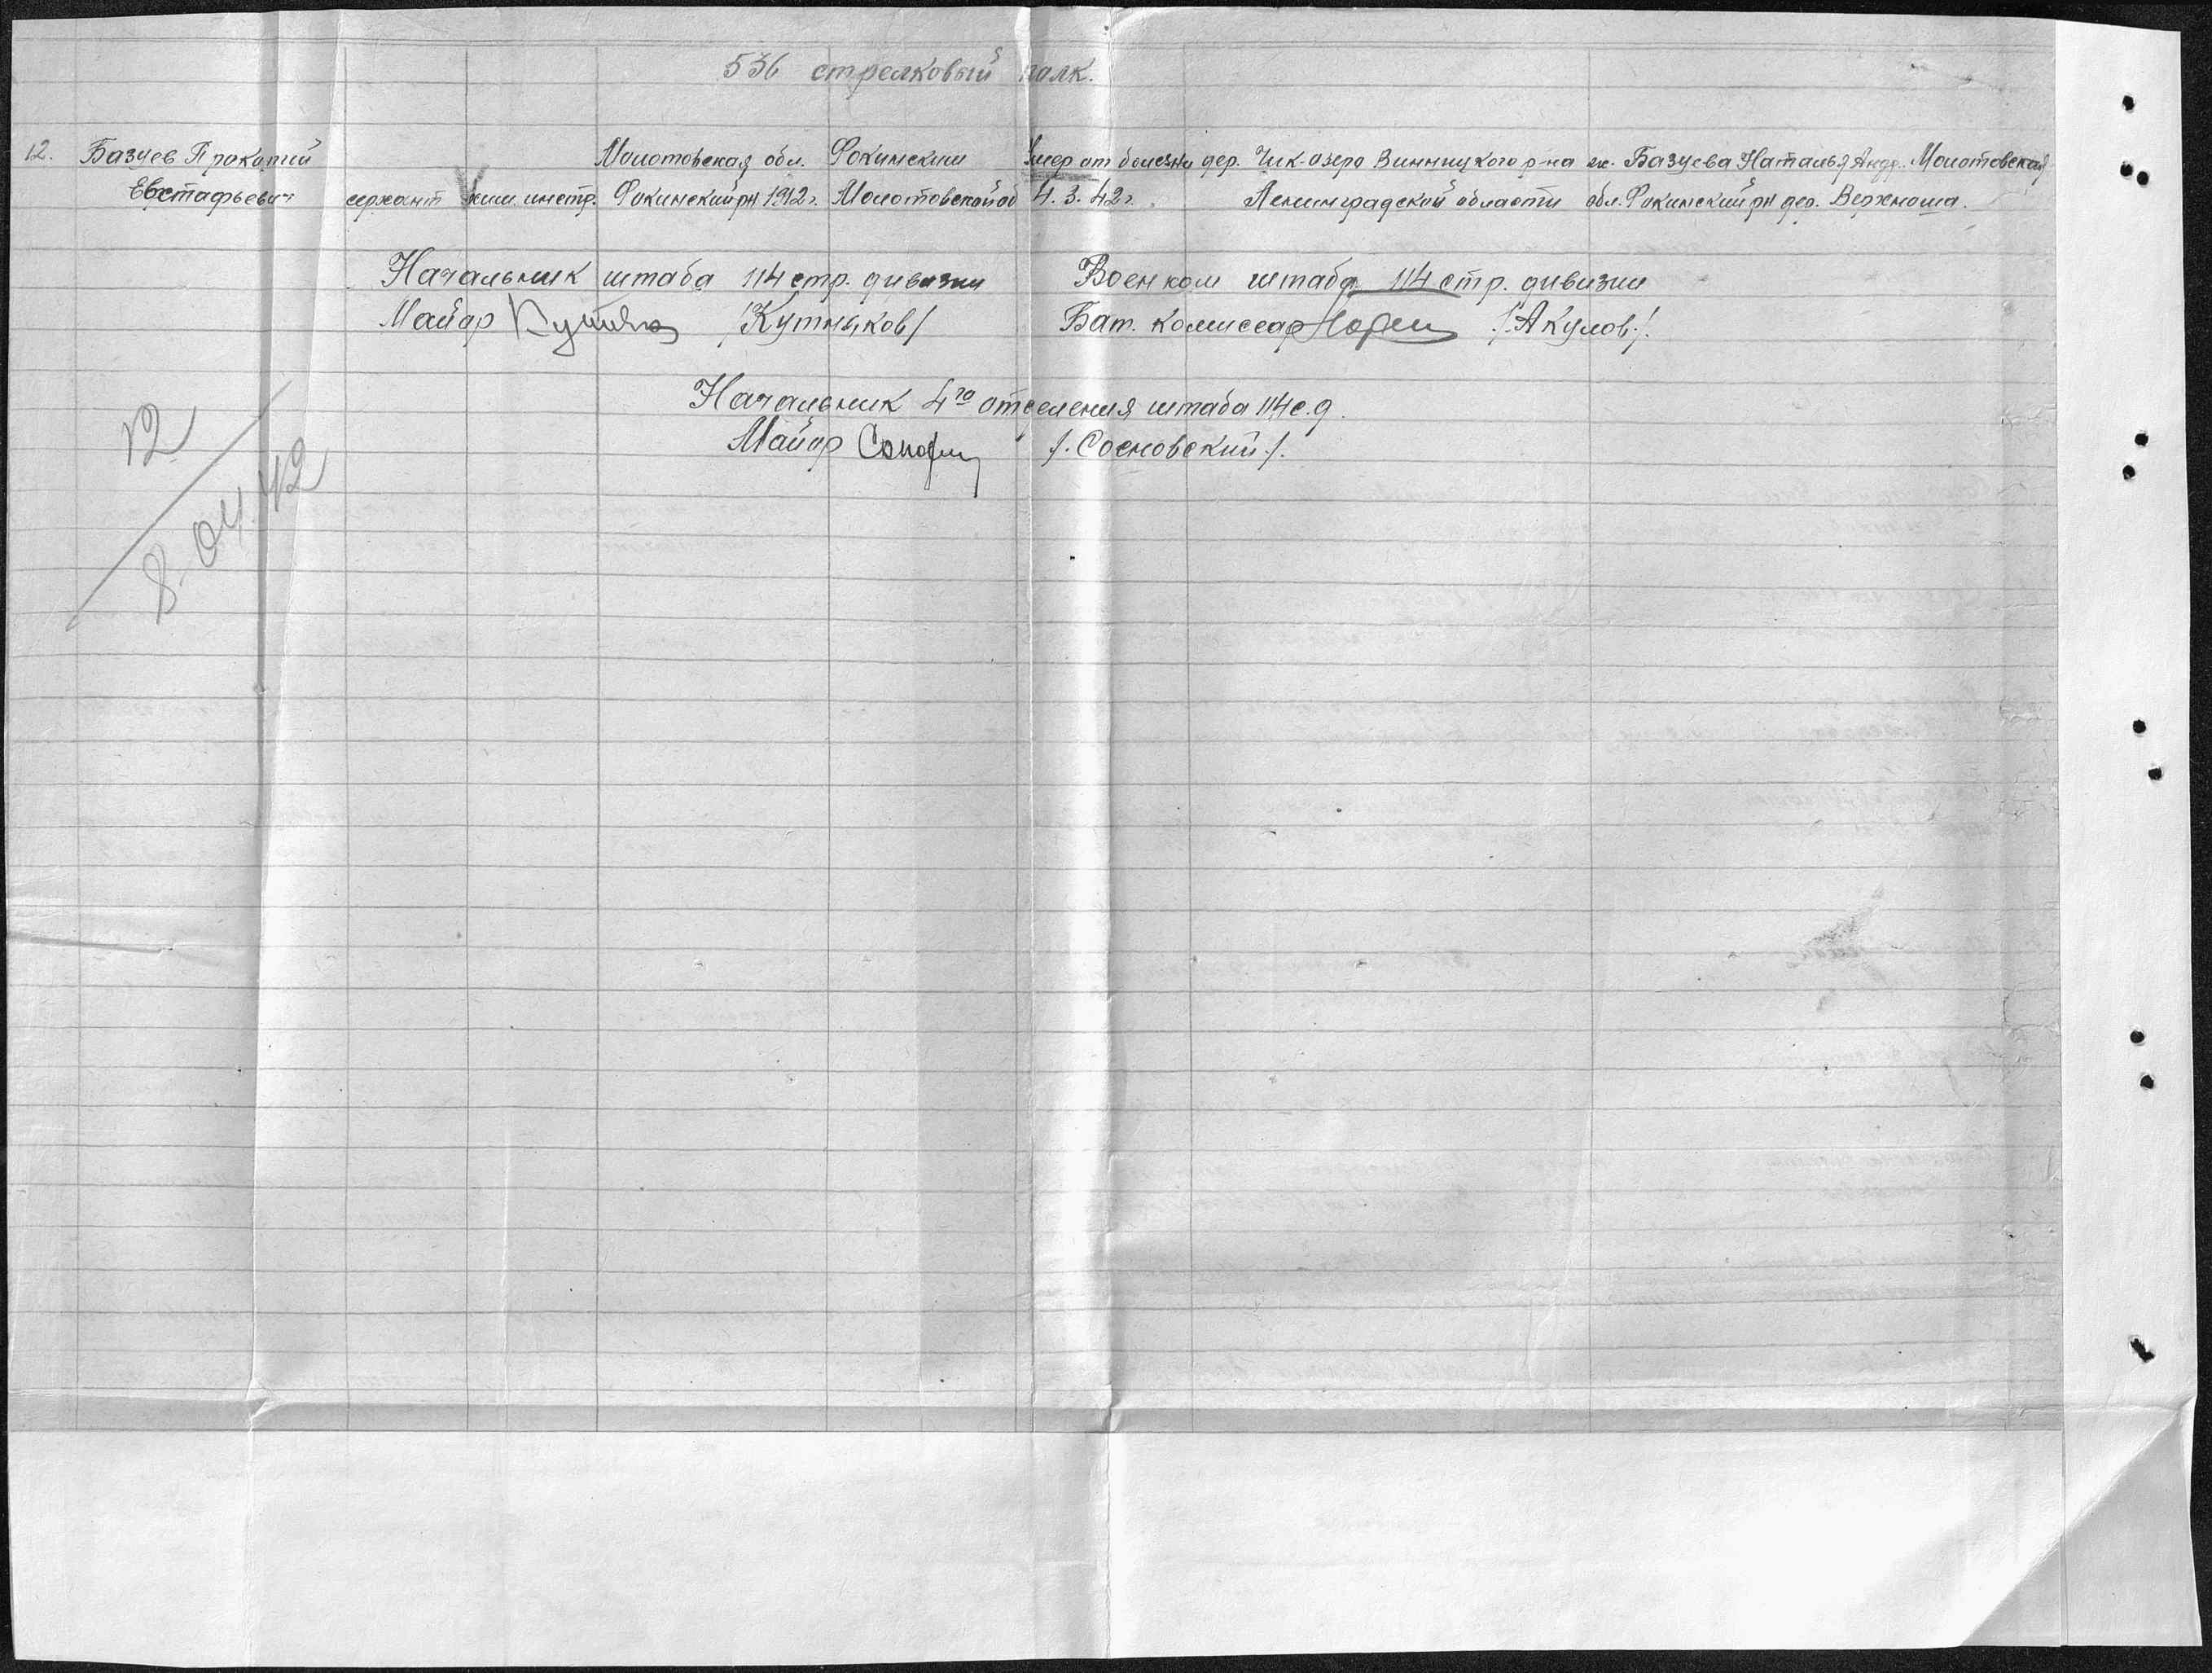 536 стрелковый полк.
12. Базуев Прокопий Молотовская обл. Фокинский Умер от болезни дер. Чик-озеро Винницкого р-на ж. Базуева Наталья Андр. Молотовская
Евстафьевич сержант хим. инстр. Фокинский рн 1912г. Молотовской об 4.3.42г. Ленинградской области обл. Фокинский рн дер. Верхноша.
Начальник штаба 114 стр. дивизии Военком штаба 114 стр. дивизии
Майор /Кутньков/ Бат. комиссар /Акулов/.
Начальник 4го отделения штаба 114 с.д.
Майор /. Сосновский ./.
12
8.04.42